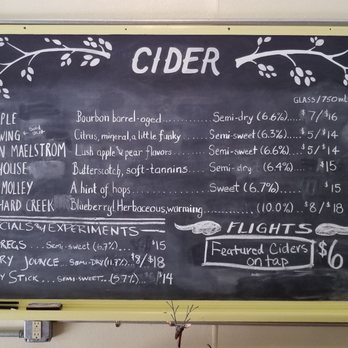 CIDER
GLASS/750mL
PLE Bourbon barrel-aged........Semi-dry (6.6%)....$7/$16
WING Citrus, mineral, a little funky...Semi-sweet (6.3%)...$5/$14
N MAELSTROM Lush apple & pear flavors.......Semi-sweet (6.6%)...$5/$14
HOUSE Butterscotch, soft-tannins......Semi-dry (6.4%) $15
MOLLEY A hint of hops..............Sweet (6.7%)......$15
HARD CREEK Blueberry, Herbaceous, warming......(10.0%) $8/$18
CIALS & EXPERIMENTS
REGS....Semi-sweet (6.7%).....$15
RY JOUNCE...Semi-Dry (11.3%) $8/$18
Y STICK....Semi-sweet..(5.7%) $14
FLIGHTS
Featured Ciders
on tap $6